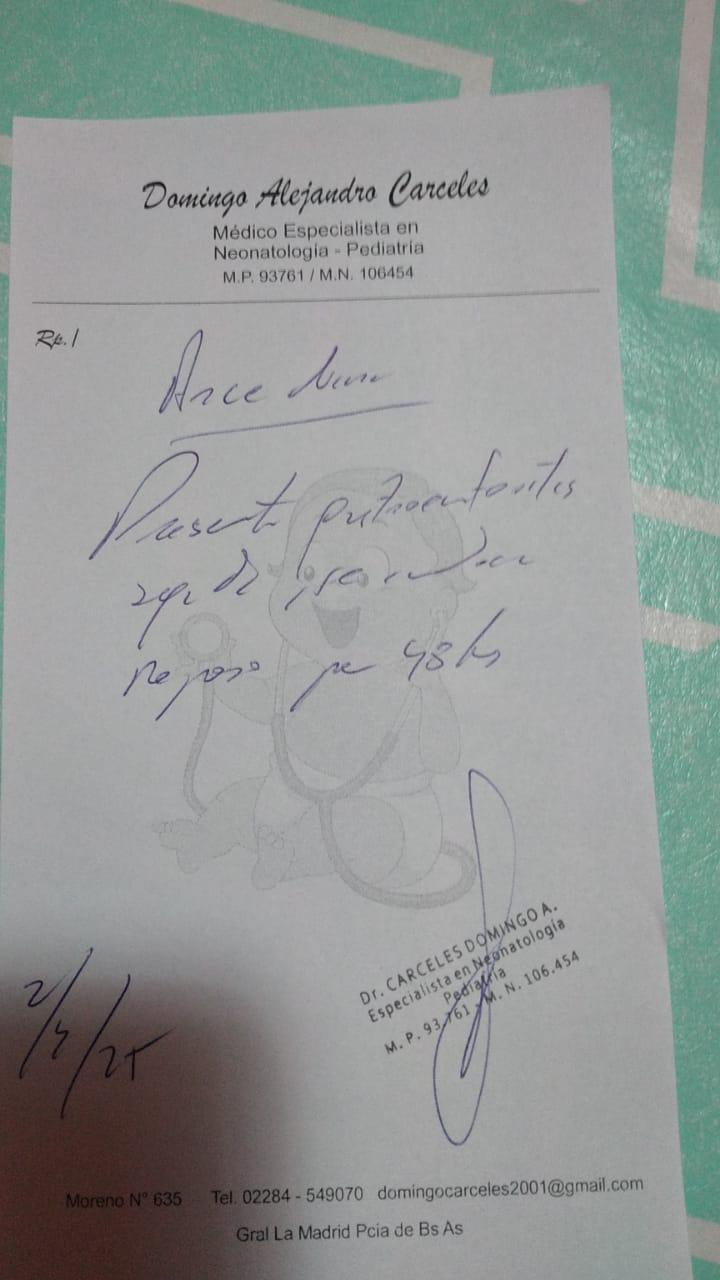 Domingo Alejandro Carceles
Médico Especialista en
Neonatología - Pediatría
M.P. 93761 / M.N. 106454
Rp./
Arce
Presenta gastroenteritis
aguda, se indica
reposo por 48 hs
Dr. CARCELES DOMINGO A.
Especialista en Neonatología
Pediatría
M. P. 93.761 - M. N. 106.454
Moreno N° 635 Tel. 02284 - 549070 domingocarceles2001@gmail.com
Gral La Madrid Pcia de Bs As